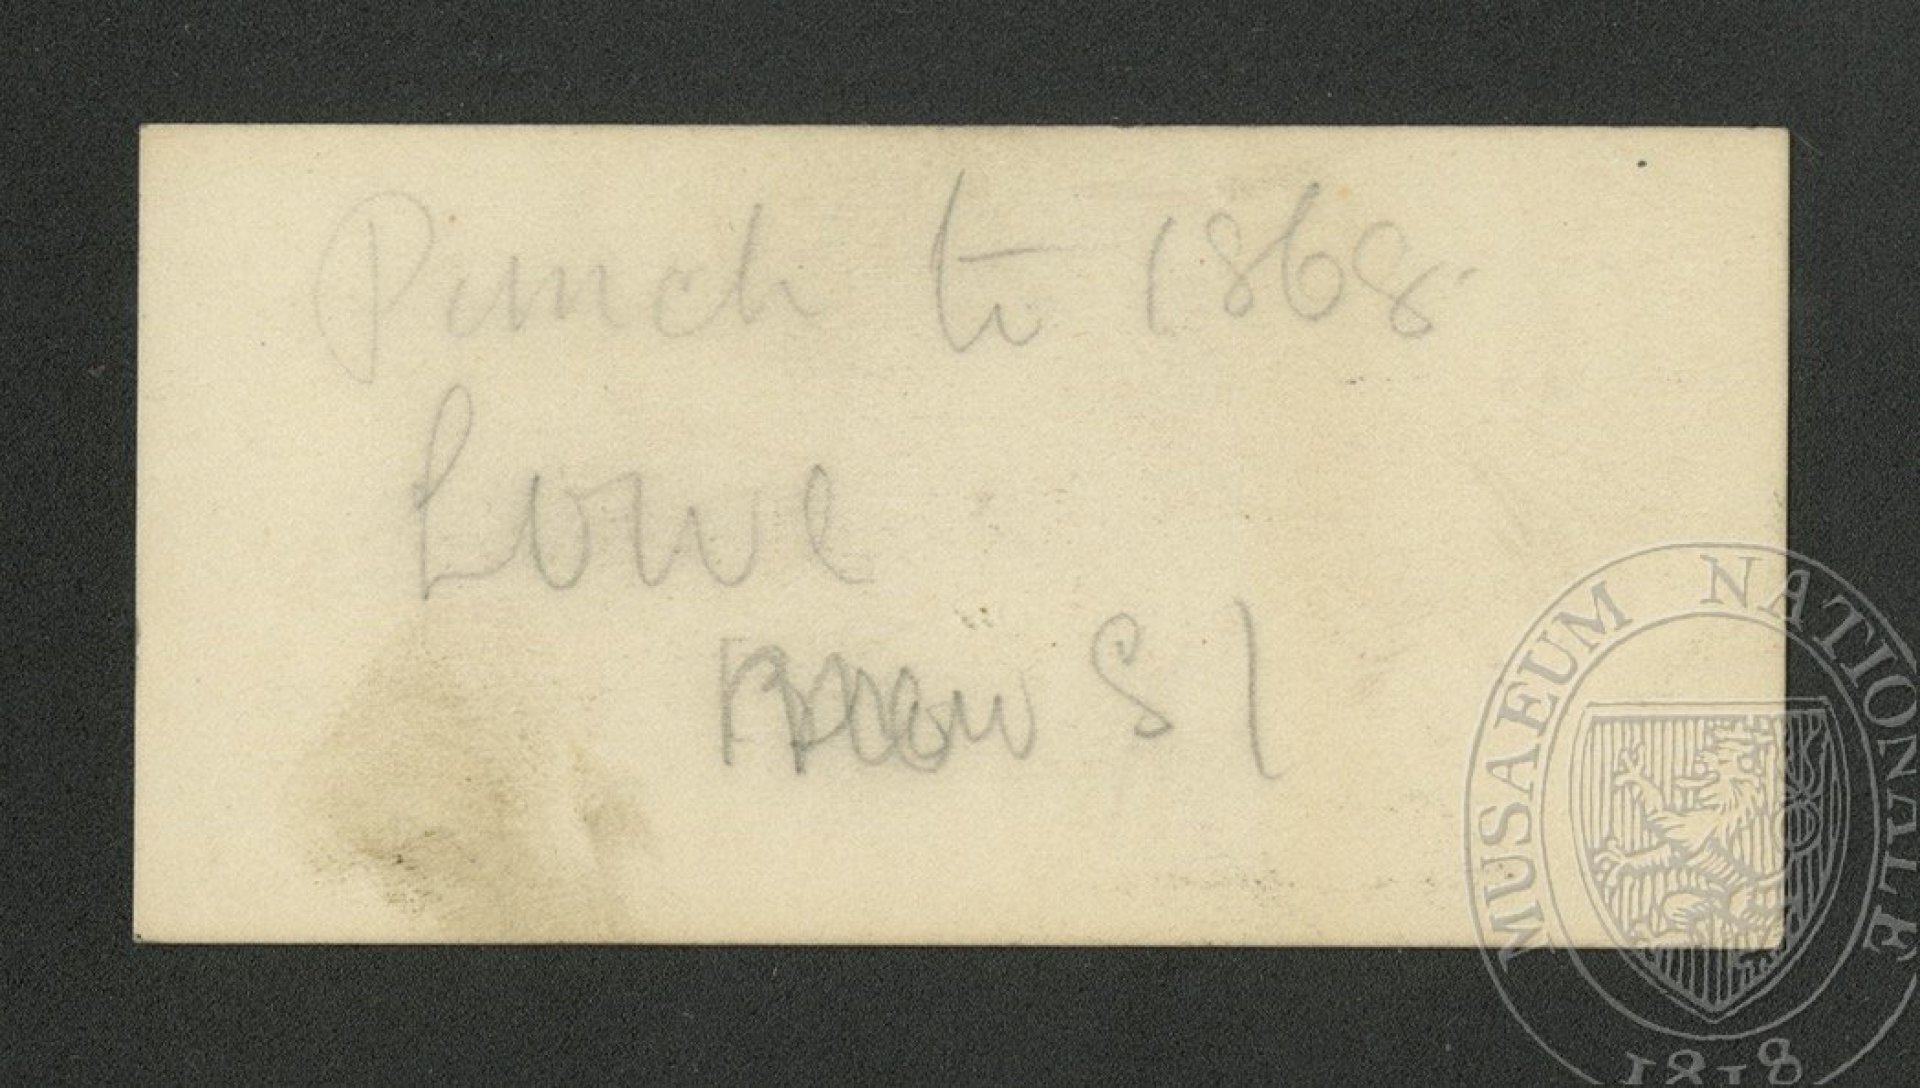 Punch to 1868.
Lowe
S |
MUSAEUM NATIONALE
1818